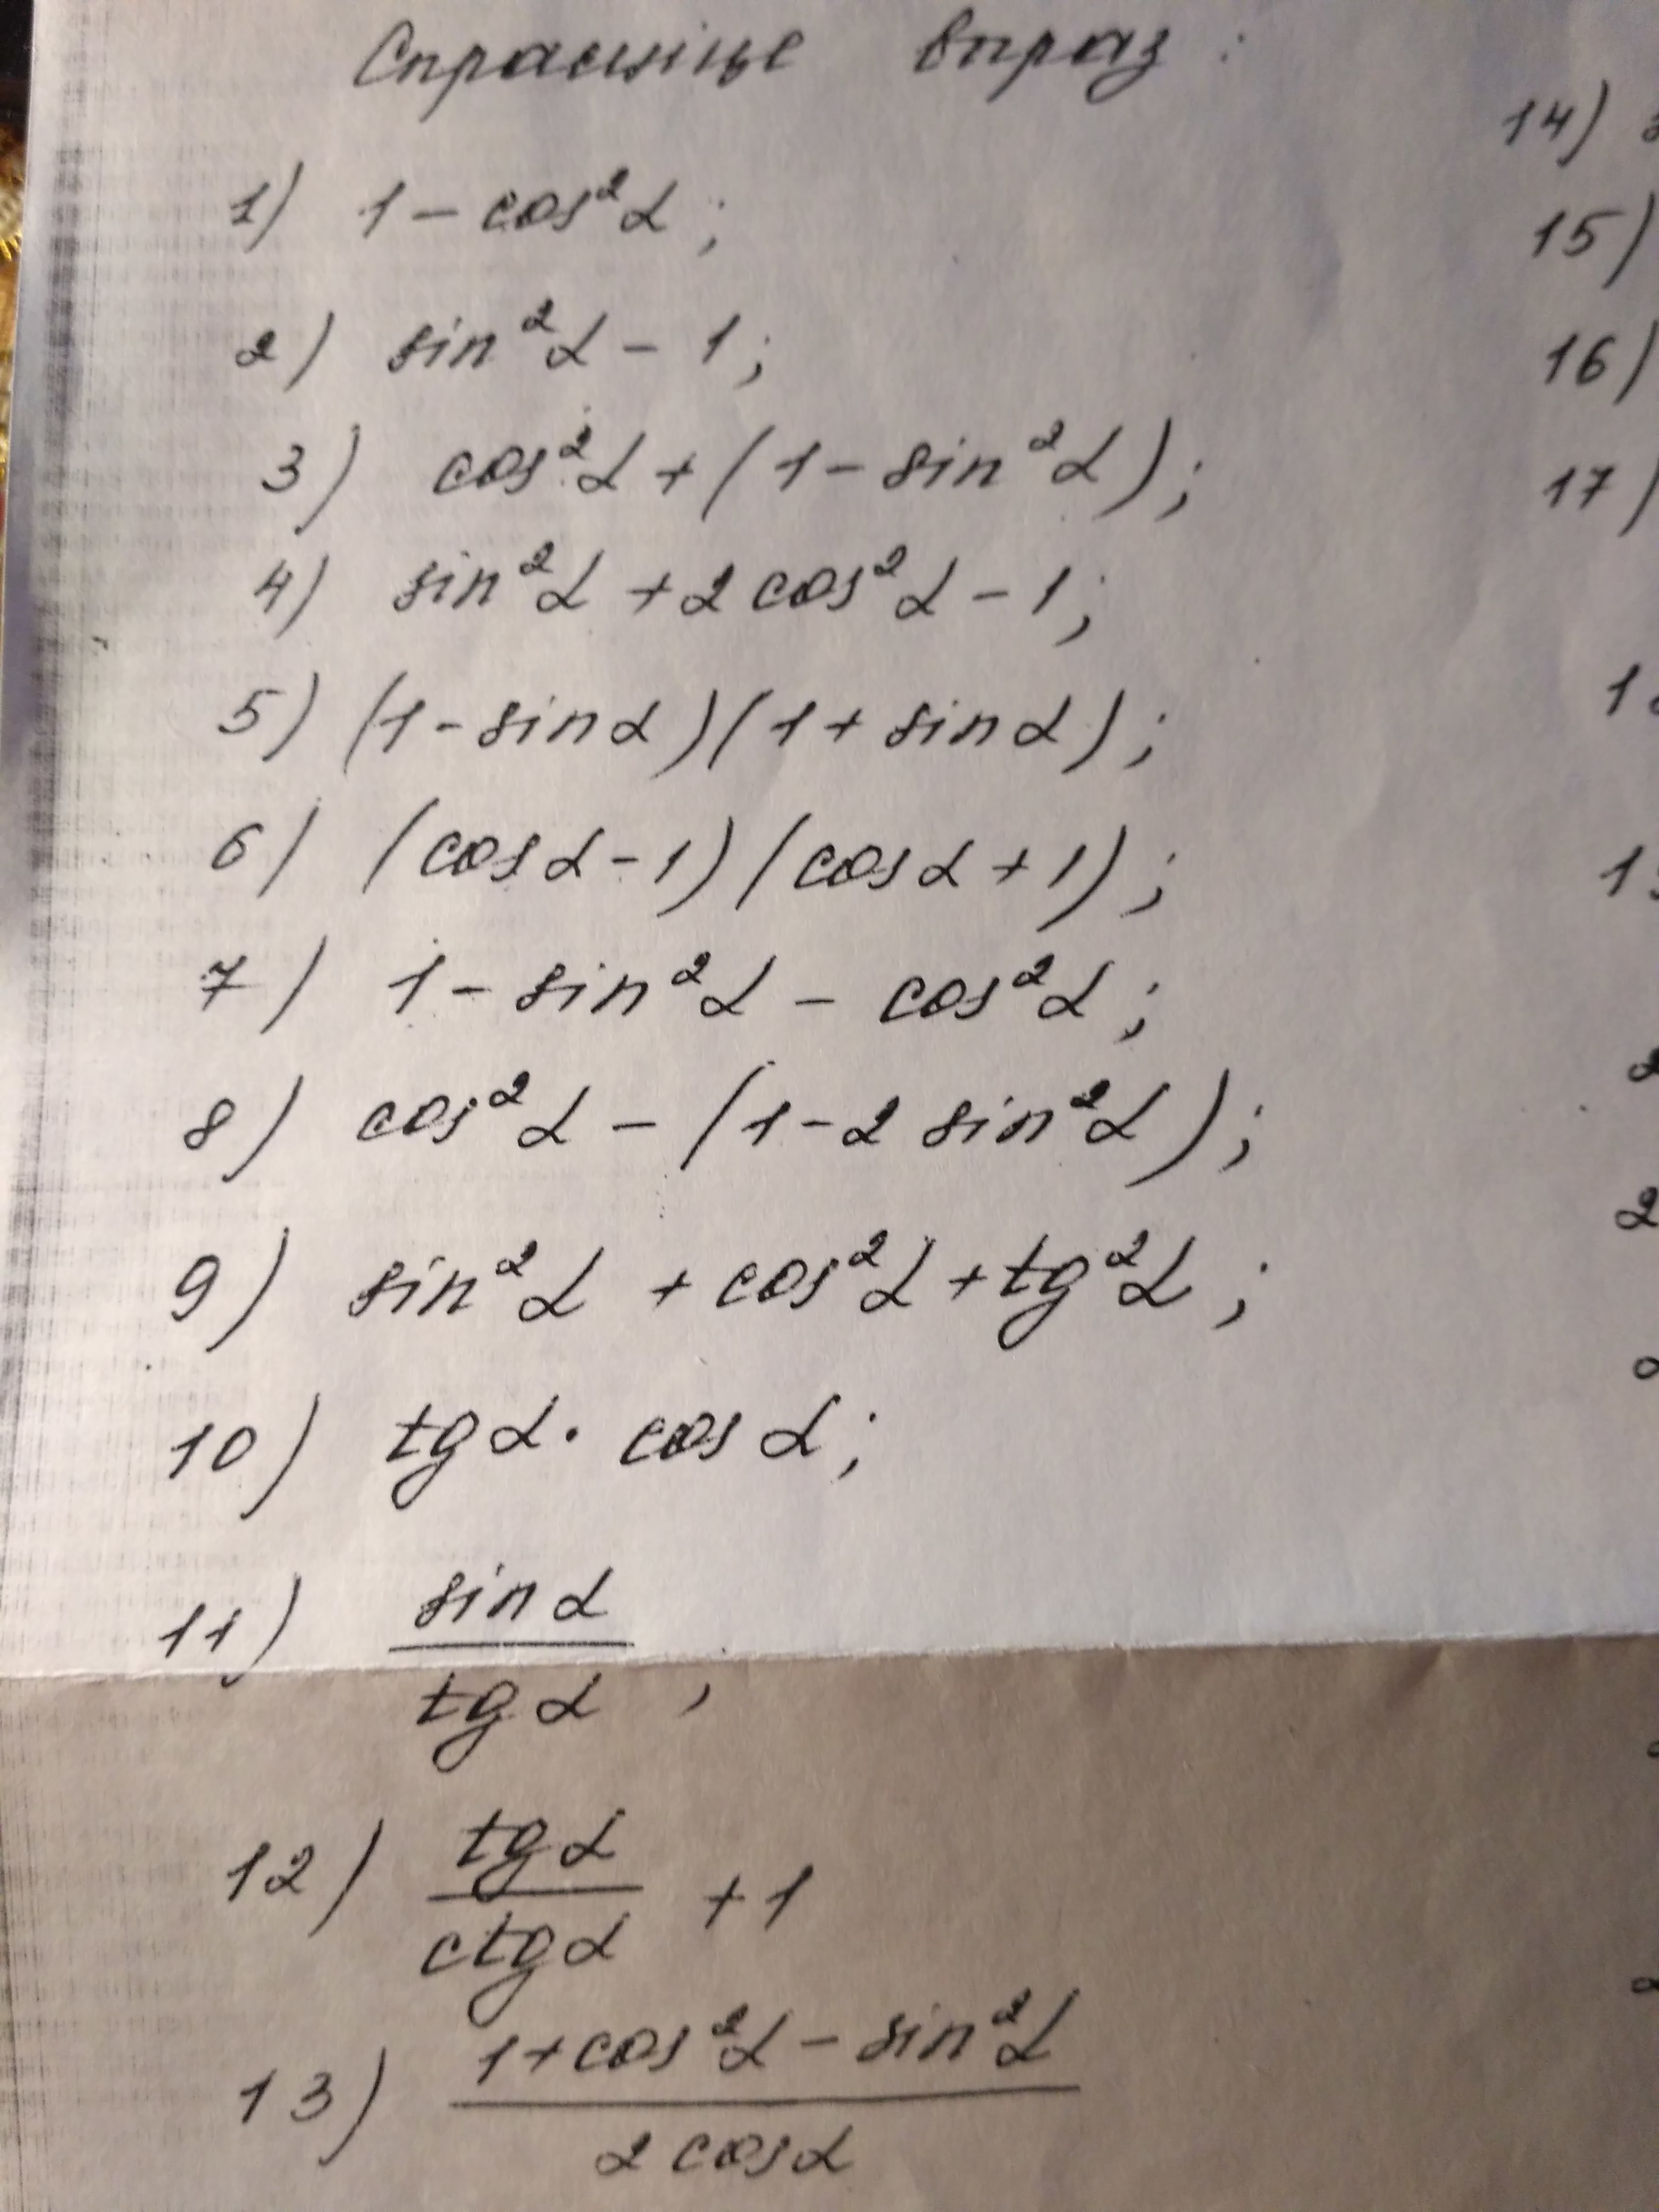 Спрасціце выраз:
1) 1 - cos²α;
2) sin²α - 1;
3) cos²α + (1 - sin²α);
4) sin²α + 2cos²α - 1;
5) (1 - sinα)(1 + sinα);
6) (cosα - 1)(cosα + 1);
7) 1 - sin²α - cos²α;
8) cos²α - (1 - 2 sin²α);
9) sin²α + cos²α + tg²α;
10) tgα · cosα;
11) sinα / tgα;
12) tgα / ctgα + 1
13) 1 + cos²α - sin²α / 2cosα
14)
15)
16)
17)